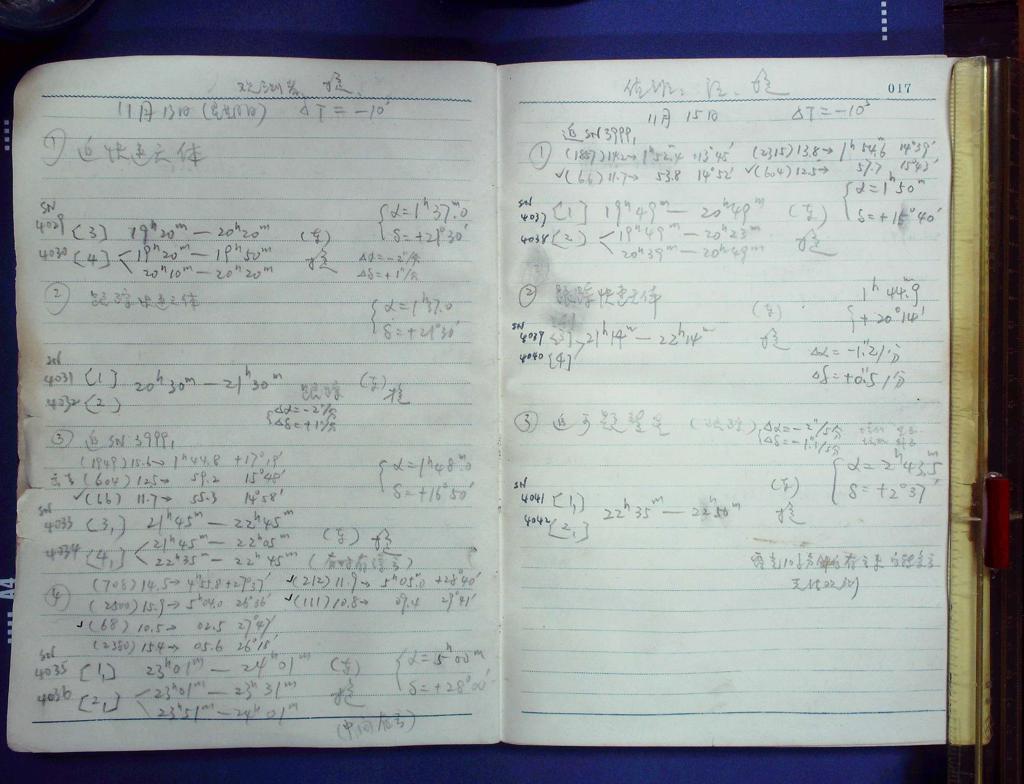 11月13日 ΔT=-10ˢ
① 追快速天体
SN
4029 [3] 19ʰ20ᵐ—20ʰ20ᵐ
{α=1ʰ37ᵐ.0
δ=+21°30′
4030 [4] <19ʰ20ᵐ—19ʰ50ᵐ
20ʰ10ᵐ—20ʰ20ᵐ
Δα=-2″/分
Δδ=+1″/分
② 跟踪快速天体
{α=1ʰ37.0
δ=+21°30′
SN
4031 [1] 20ʰ30ᵐ—21ʰ30ᵐ
4032 [2]
跟踪
{Δα=-2″/分
Δδ=+1″/分
③ 追SN3999,
(1949)15.6→1ʰ44.8 +17°19′
(604)12.5→ 59.2 15°48′
✓(66) 11.7→ 55.3 14°58′
{α=1ʰ48ᵐ.0
δ=+16°50′
SN
4033 [3,] 21ʰ45ᵐ—22ʰ45ᵐ
4034 [4,] <21ʰ45ᵐ—22ʰ05ᵐ
22ʰ35ᵐ—22ʰ45ᵐ
④ (708)14.5→4ʰ55.8+27°37′ ✓(212)11.9→5ʰ05ᵐ.0 +28°40′
(2500)15.9→5ʰ04.0 26°36′ ✓(111)10.8→ 09.4 29°41′
✓(68)10.5→ 02.5 27°47′
(2380)15.4→ 05.6 26°15′
SN
4035 [1,] 23ʰ01ᵐ—24ʰ01ᵐ
{α=5ʰ00ᵐ
δ=+28°00′
4036 [2,] <23ʰ01ᵐ—23ʰ31ᵐ
23ʰ51ᵐ—24ʰ01ᵐ
017
11月15日 ΔT=-10ˢ
追SN3999,
① (1889)14.2→1ʰ52ᵐ.4 13°45′ (2315)13.8→1ʰ54ᵐ.6 14°39′
✓(66)11.7→ 53.8 14°52′ ✓(604)12.5→ 57.7 15°43′
{α=1ʰ50ᵐ
δ=+16°40′
SN
4037 [1] 19ʰ49ᵐ—20ʰ49ᵐ
4038 [2] <19ʰ49ᵐ—20ʰ23ᵐ
20ʰ39ᵐ—20ʰ49ᵐ
② 跟踪快速天体
{1ʰ44ᵐ.9
+20°14′
SN
4039 [3] 21ʰ14ᵐ—22ʰ14ᵐ
4040 [4]
Δα=-1″.2/分
Δδ=+0″.5/分
③ 追可疑彗星 (跟踪) {Δα=-2″/5分
Δδ=-1″.1/5分
{α=2ʰ43.5
δ=+2°37′
SN
4041 [1,] 22ʰ35ᵐ—22ʰ50ᵐ
4042 [2,]